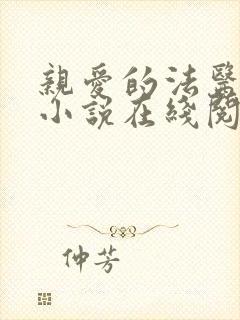 親愛的法醫
小說在綫閱
仲芳